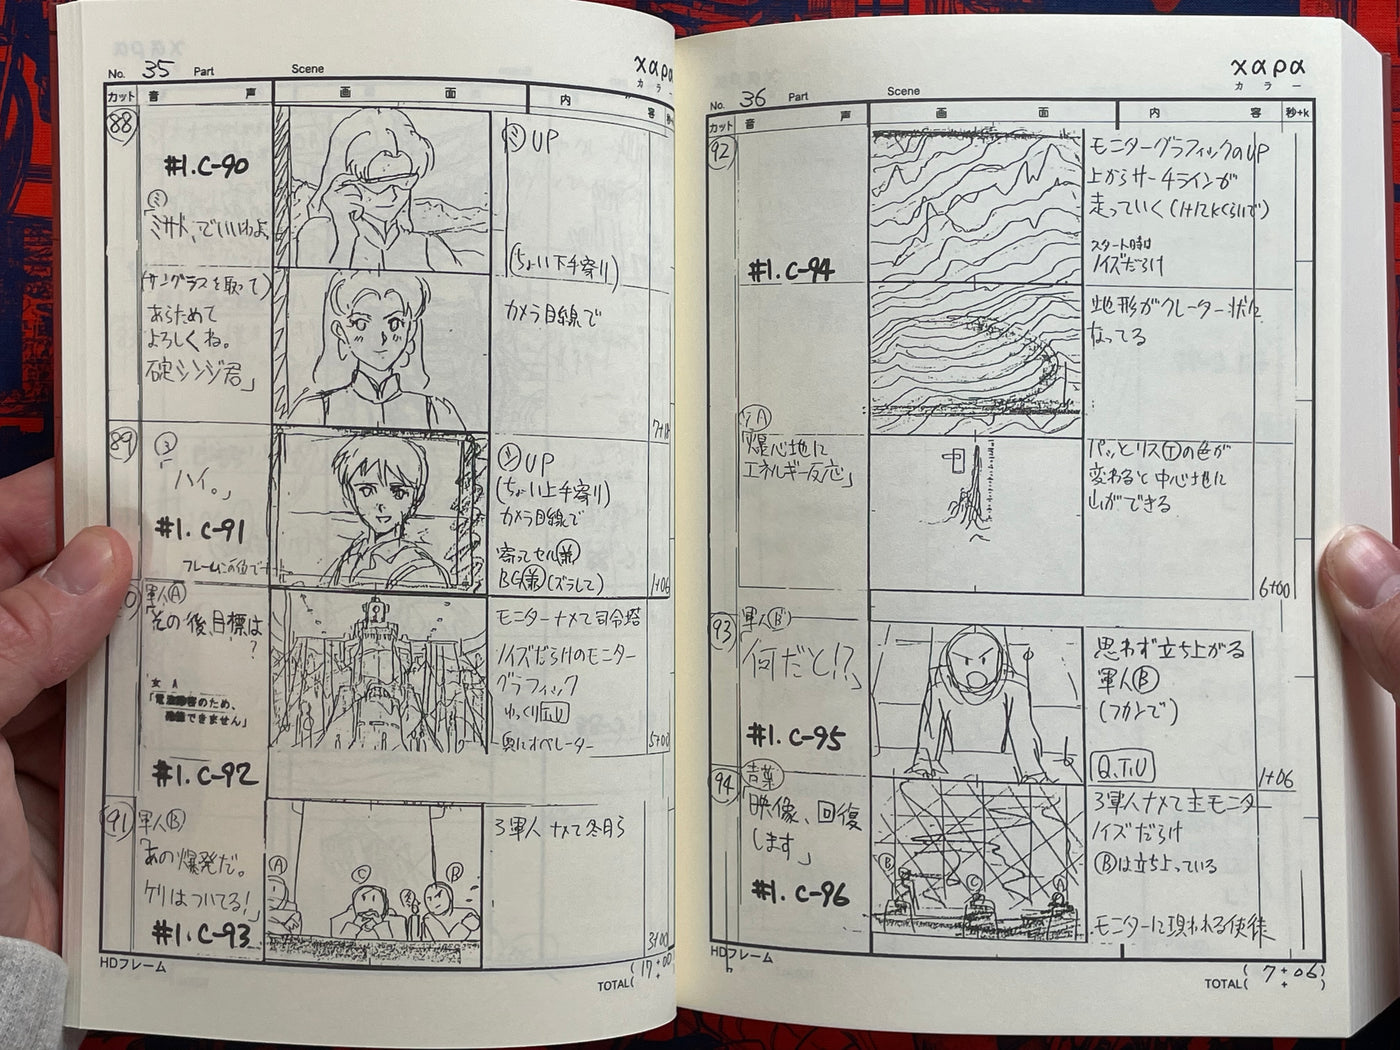 No. 35 Part Scene
χαρα
カラー
カット 音声 画面 内容 秒+k
88
#1.C-90
ミ
「ミサト、でいいわよ。
(サングラスを取って)
あらためて
よろしくね。
碇シンジ君」
ミ UP
(ちょい下手寄り)
カメラ目線で
7+18
89
シ
「ハイ。」
#1.C-91
フレームこの位で
シ UP
(ちょい上手寄り)
カメラ目線で
寄ってセル兼
BG兼(ズラして)
1+06
軍人A
「その後、目標は
?
女A
「電波障害のため、
確認できません」
#1.C-92
モニターナメて司令塔
ノイズだらけのモニター
グラフィック
ゆっくりT.U
奥にオペレーター
5+00
91
軍人B
「あの爆発だ。
ケリはついてる!」
#1.C-93
A
C
B
3軍人ナメて冬月ら
3+00
HDフレーム
TOTAL( 17+00
No. 36 Part Scene
χαρα
カラー
カット 音声 画面 内容 秒+k
92
#1.C-94
モニターグラフィックのUP
上からサーチラインが
走っていく(1H12Kくらいで)
スタート時は
ノイズだらけ
地形がクレーター状に
なってる
女A
「爆心地に
エネルギー反応」
パッとリスTの色が
変わると中心地に
山ができる
6+00
93
軍人B
「何だと!?」
#1.C-95
思わず立ち上がる
軍人B
(フカンで)
Q.T.U
1+06
94
青葉
「映像、回復
します」
#1.C-96
B
C
A
3軍人ナメて主モニター
ノイズだらけ
Bは立ち上っている
モニターに現われる使徒
HDフレーム
TOTAL( 7+06 )